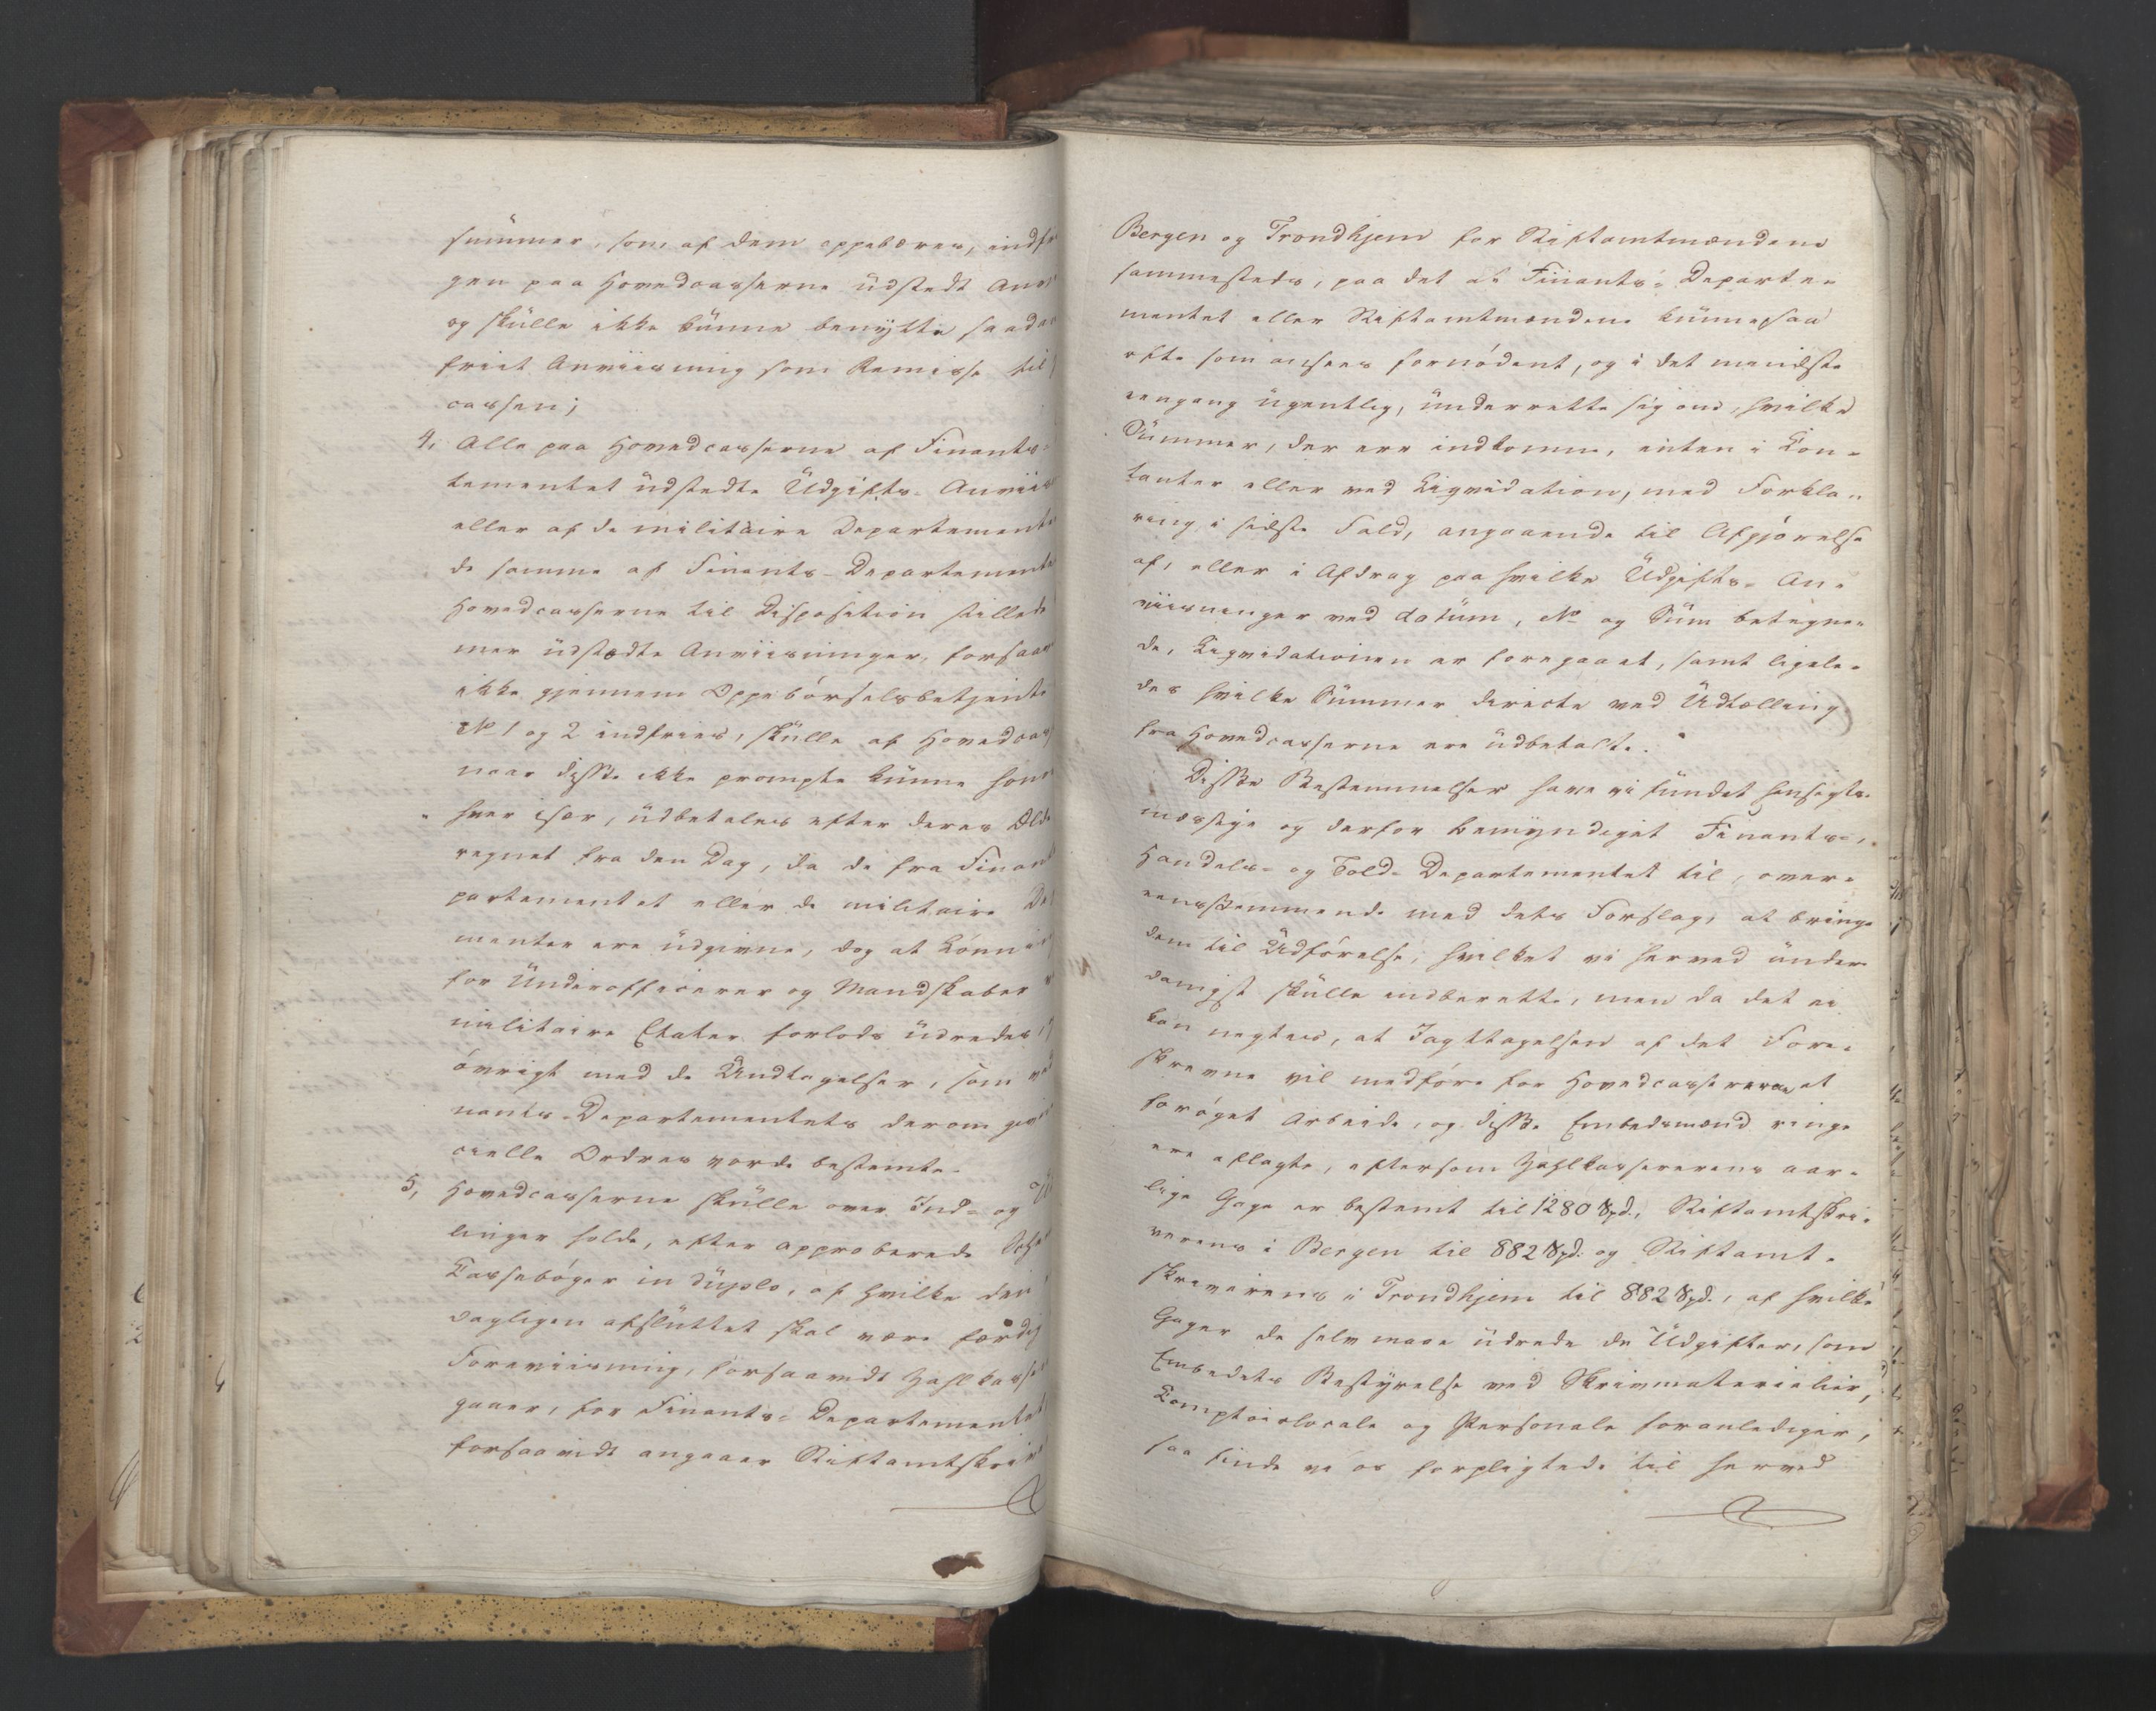 summer, som af dem oppebæres, indfr
gen paa Hovedcasserne udstedt Anv
og skulle ikke kunne benytte saadan
friet Anviisning som Remisse til
cassen;
4, Alle paa Hovedcasserne af Finants-
tementet udstedte Udgifts-Anviis
eller af de militaire Departemente
de samme af Finants-Departemente
Hovedcasserne til Disposition stillede
mer udstædte Anviisninger, forsaav
ikke gjennem Oppebörselsbetjente
No 1 og 2 indfries, skulle af Hovedcas
naar disse ikke prompte kunne hono
hver især, udbetales efter deres Ælde
regnet fra den Dag, da de fra Finants
partementet eller de militaire De
menter ere udgivne, dog at Lönni
for Underofficerer og Mandskaber
militaire Etater forlods udredes,
övrigt med de Undtagelser, som ved
nants-Departementets derom givn
cielle Ordres vorde bestemte.
5, Hovedcasserne skulle over Ind- og
linger holde, efter approberede Sche
Cassebøger in duplo, af hvilke den
dagligen afsluttet skal være færdig
Foreviisning, forsaavidt Zahlkasse
gaaer, for Finants-Departementet
forsaavidt angaaer Stiftamtskrive
Bergen og Trondhjem for Stiftamtmændene
sammesteds, paa det at Finants-Departe-
mentet eller Stiftamtmændene kunne saa
ofte som ansees fornödent, og i det mindste
eengang ugentlig, underrette sig om, hvilke
Summer, der ere indkomne, enten i Con-
tanter eller ved Liqvidation, med Forkla-
ring i sidste Fald, angaaende til Afgjörelse
af, eller i Afdrag paa hvilke Udgifts-An-
viisninger ved datum, No og Sum betegne-
de, Liqvidationen er foregaaet, samt ligele-
des hvilke Summer directe ved Udtælling
fra Hovedcasserne ere udbetalte.
Disse Bestemmelser have vi fundet hensigts-
mæssige og derfor bemyndiget Finants-,
Handels- og Told-Departementet til, over-
eensstemmende med dets Forslag, at bringe
dem til Udförelse, hvilket vi herved under
danigst skulle indberette, men da det ei
kan negtes, at Iagttagelsen af det Fore-
skrevne vil medföre for Hovedcassererne et
foröget Arbeide, og disse Embedsmænd ringe
ere aflagte, eftersom Zahlkassererens aar-
lige Gage er bestemt til 1280 Spd., Stiftamtskri-
verens i Bergen til 882 Spd. og Stiftamt-
skriverens i Trondhjem til 882 Spd., af hvilke
Gager de selv maae udrede de Udgifter, som
Embedets Bestyrelse ved Skrivmaterialier,
Comptoirlocale og Personale foranlediger,
saa finde vi os forpligtede til herved